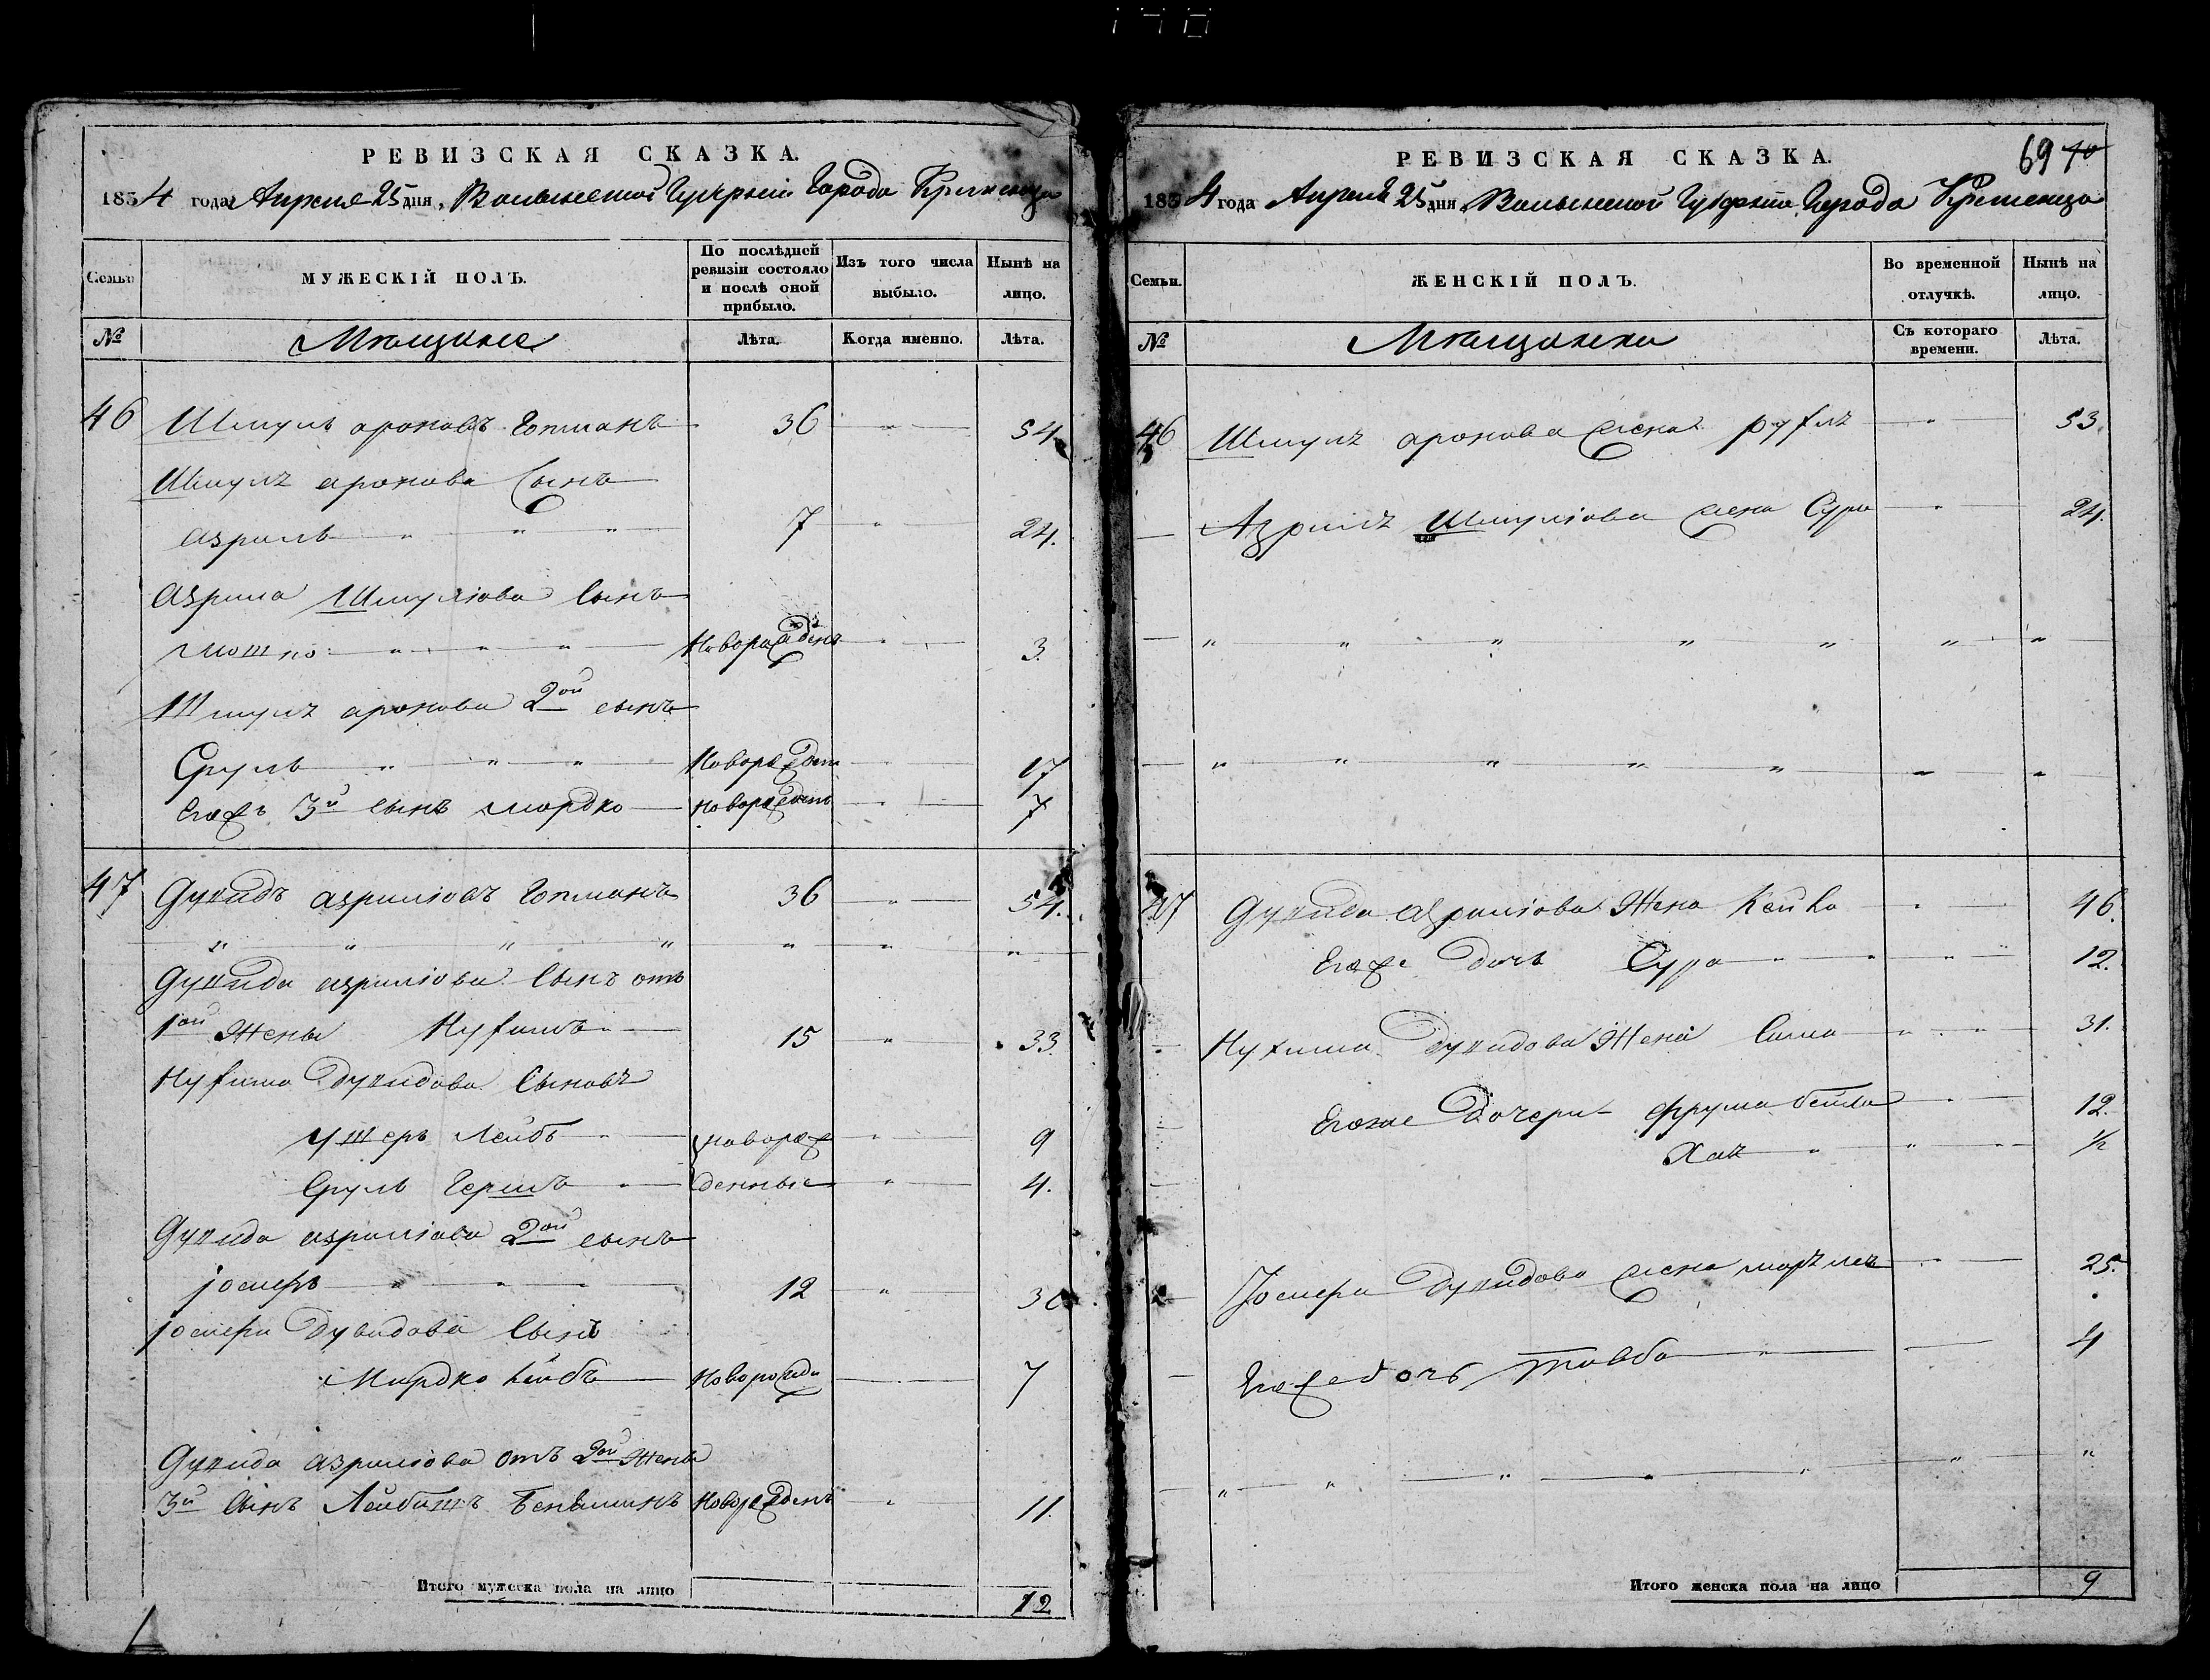 РЕВИЗСКАЯ СКАЗКА.
1854 года Апреля 25 дня, Волынской Губернии Города Кременца
Семьи
МУЖЕСКІЙ ПОЛЪ.
По послѣдней ревизіи состояло и послѣ оной прибыло.
Изъ того числа выбыло.
Нынѣ на лицо.
№
Мѣщане
Лѣта.
Когда именно.
Лѣта.
46 Шмуль ароновъ Гопманъ 36 " 54.
Шмулѣ аронова Сынъ
азриль " " " 7 " 24.
азрила Шмуліова Сынъ
Мошко " " " Новорожденъ " 3.
Шмулѣ аронова 2ой сынъ
Сруль " " " Новорожден " 17
Егожъ 3й сынъ Мордко новорожденъ " 7
47 Дувидъ азриліовъ Гопманъ 36 " 54.
" " " " " " "
Дувида азриліова Сынъ отъ
1ой Жены Нухимъ 15 " 33.
Нухима Дувидова Сыновъ
Ушеръ Лейбъ новорож " 9
Сруль Гершъ денные " 4.
Дувида азриліова 2ой сынъ
Іосиеръ " " " 12 " 30
Дувидова Сынъ
Мордко Лейбъ Новорожде 7
Дувида азриліова отъ 2ой Жены
3й Сынъ Лейбишъ Беньминъ Новорожденъ " 11.
Итого мужеска пола на лицо 12
69 70
РЕВИЗСКАЯ СКАЗКА.
1854 года Апреля 25 дня, Волынской Губерніи Города Кременца
Семьи.
ЖЕНСКІЙ ПОЛЪ.
Во временной отлучкѣ.
Нынѣ на лицо.
№
Мѣщанки
Съ котораго времени.
Лѣта.
46 Шмулѣ аронова жена рухлѣ " 53.
Азрилѣ Шмуліова жена Сура " 24.
" " " " " " "
" " " " " " "
47 Дувида азриліова Жена Хейка " 46.
Егоже дочь Сура " " " 12.
Нухима Дувидова Жена Сима " " 31.
Егоже Дочери Фрума бейла " 12.
Хая " " " ½
Дувидова жена " 25.
Егожедочь Тавба " 4
" " " " " " "
Итого женска пола на лицо 9